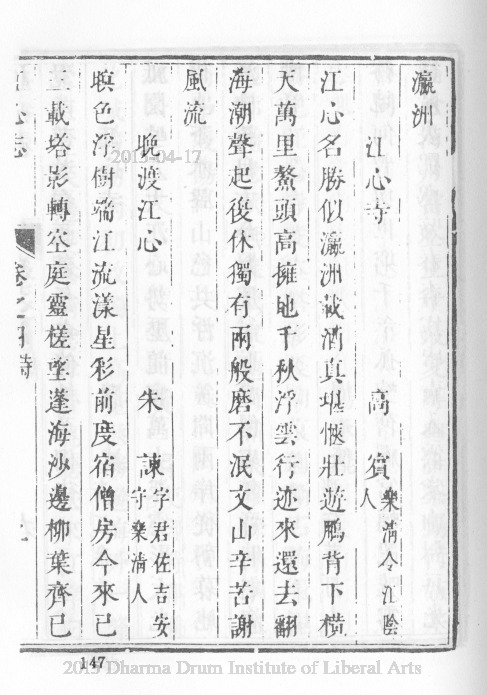 瀛洲
江心寺 高賓 樂淸令江陰人
江心名勝似瀛洲載酒真堪愜壯遊鵬背下橫
天萬里鰲頭高擁地千秋浮雲行迹來還去翻
海潮聲起復休獨有兩般磨不泯文山辛苦謝
風流
晚渡江心 朱諫 字君佐吉安守樂淸人
暝色浮樹端江流漾星彩前度宿僧房今來已
載塔影轉空庭靈槎望蓬海沙邊柳葉齊已
江心志 卷之 詩
147
2013-04-17
2013 Dharma Drum Institute of Liberal Arts